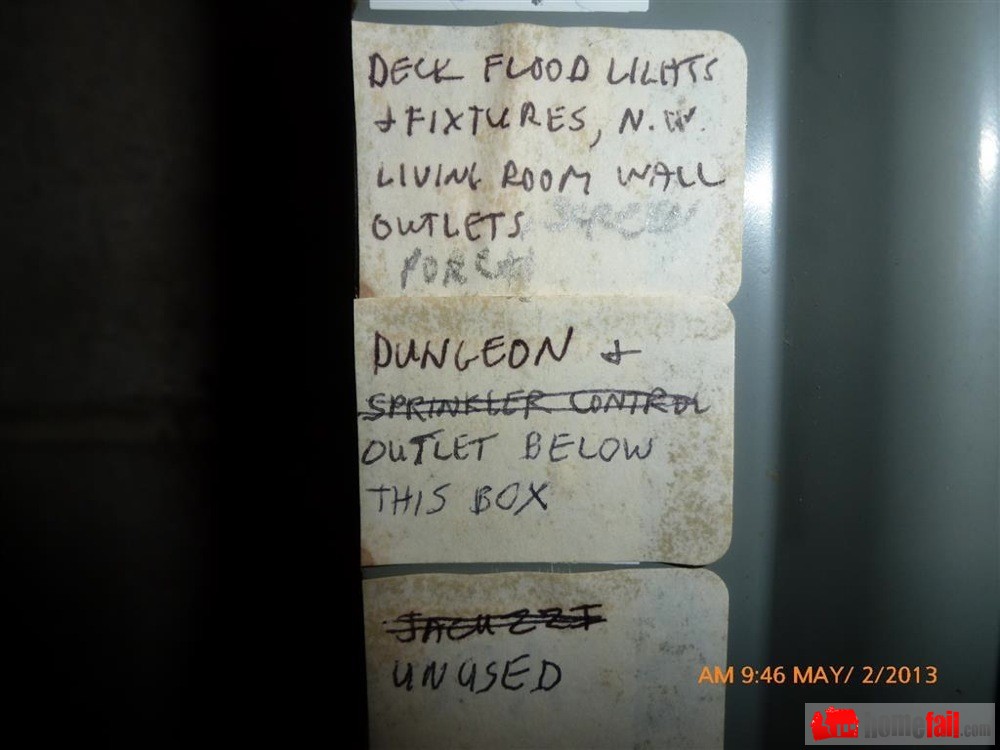 DECK FLOOD LIGHTS
& FIXTURES, N.W.
LIVING ROOM WALL
OUTLETS SCREEN
PORCH
DUNGEON &
SPRINKLER CONTROL
OUTLET BELOW
THIS BOX
JACUZZI
UNUSED
AM 9:46 MAY/ 2/2013
homefail.com